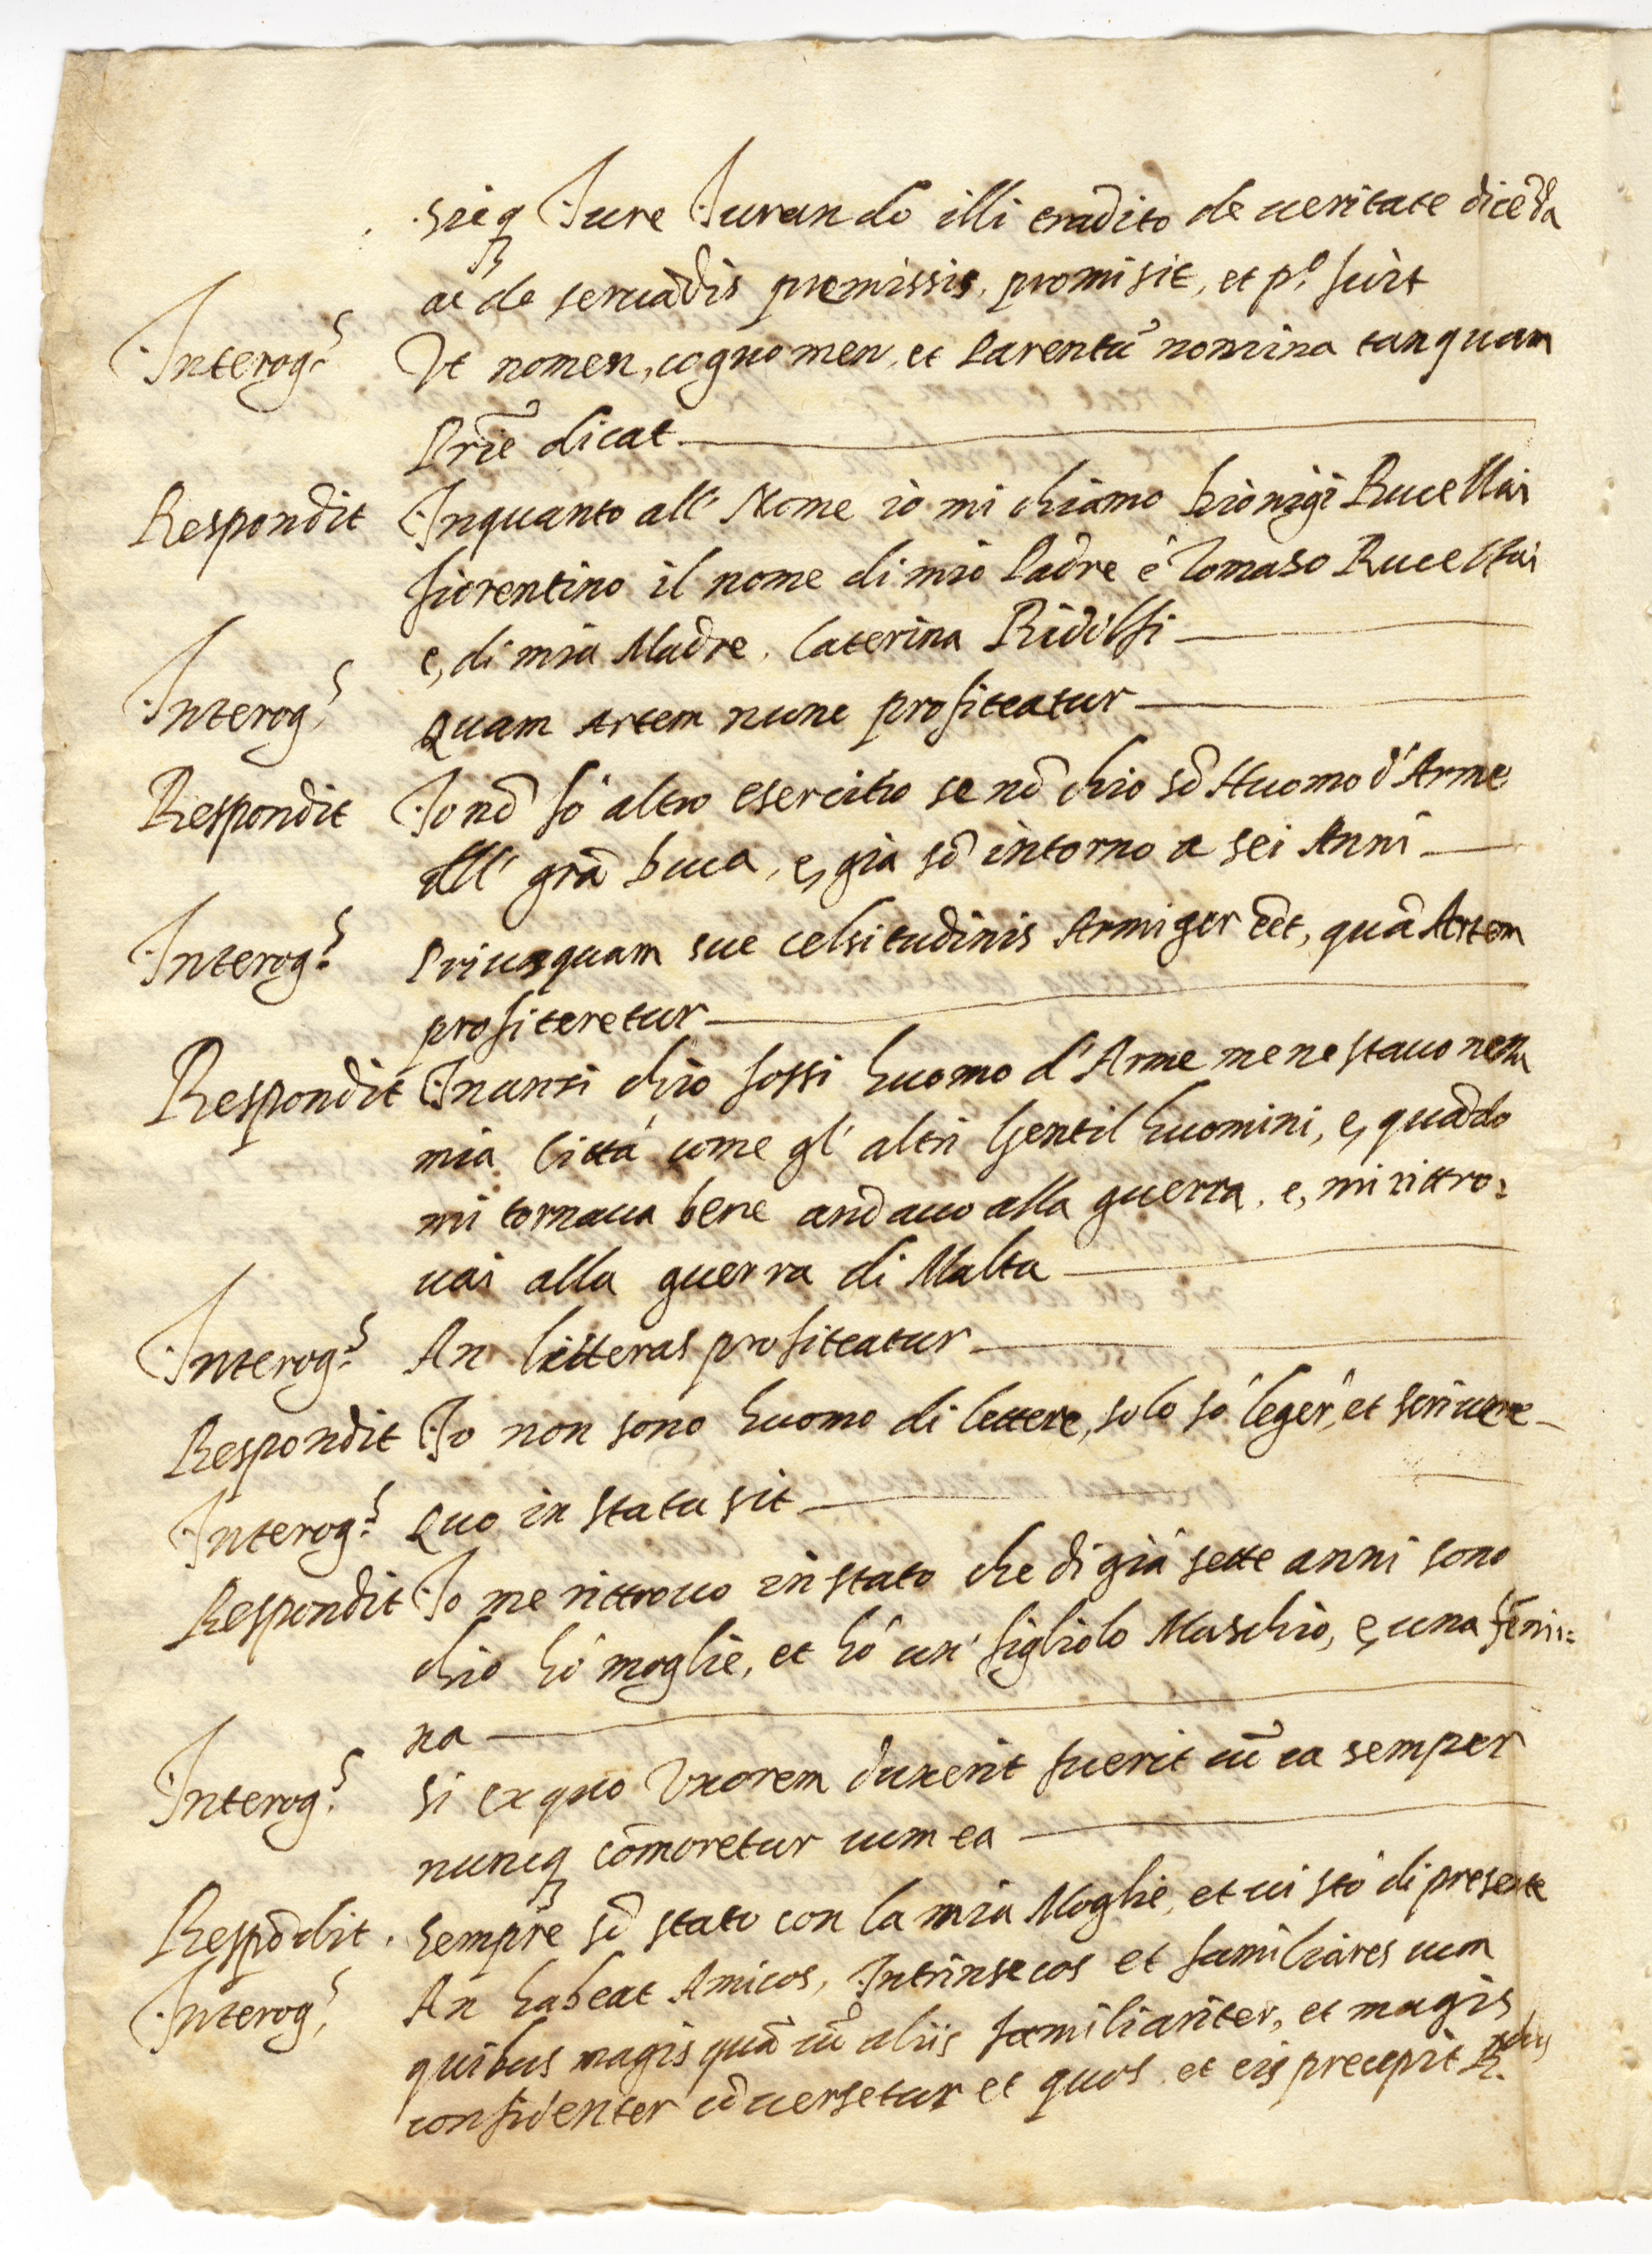 sicq Jure Jurando illi tradito de ueritate dicēda
ac de seruādis premissis, promisit, et p.º fuit
Interog.s Vt nomen, cognomen, et Parentū nomina tanquam
Prīe dicat
Respondit Inquanto all' Nome io mi chiamo Dionigi Rucellai
fiorentino il nome di mio Padre é Tomaso Rucellai
e, di mia Madre, Caterina Ridolfi
Interog.s Quam Artem nunc profiteatur
Respondit Io nō fó altro esercitio se nō ch'io sō Huomo d'Arme
dll' grā Duca, e, gia sō intorno a sei Anni
Interog.s Priusquam sue celsitudinis Armiger eēt, quā Artem
profiteretur
Respondit Inanzi ch'io fossi huomo d'Arme me ne stauo nella
mia Cittá come gl' altri Gentil huomini, e, quādo
mi tornaua bene andauo alla guerra, e, mi rittro=
uai alla guerra di Malta
Interog.s An litteras profiteatur
Respondit Io non sono huomo di lettere, solo só leger', et scriuere
Interog.s Quo in statu sit
Respondit Io me rittrouo in stato che di giá sette anni sono
ch'io hó moglie, et hó un' figliolo Maschio, e, una fēmi=
na
Interog.s Si ex quo Vxorem duxerit fuerit cū ea semper
nuncq cōmoretur cum ea
Respōdit. Sempre sō stato con la mia Moglie, et ui stó di presente
Interog.s An habeat Amicos, Intrinsecos et familiares cum
quibus magis quā cū aliis familiariter, et magis
confidenter cōuersetur et quos, et eis precepit R.dus